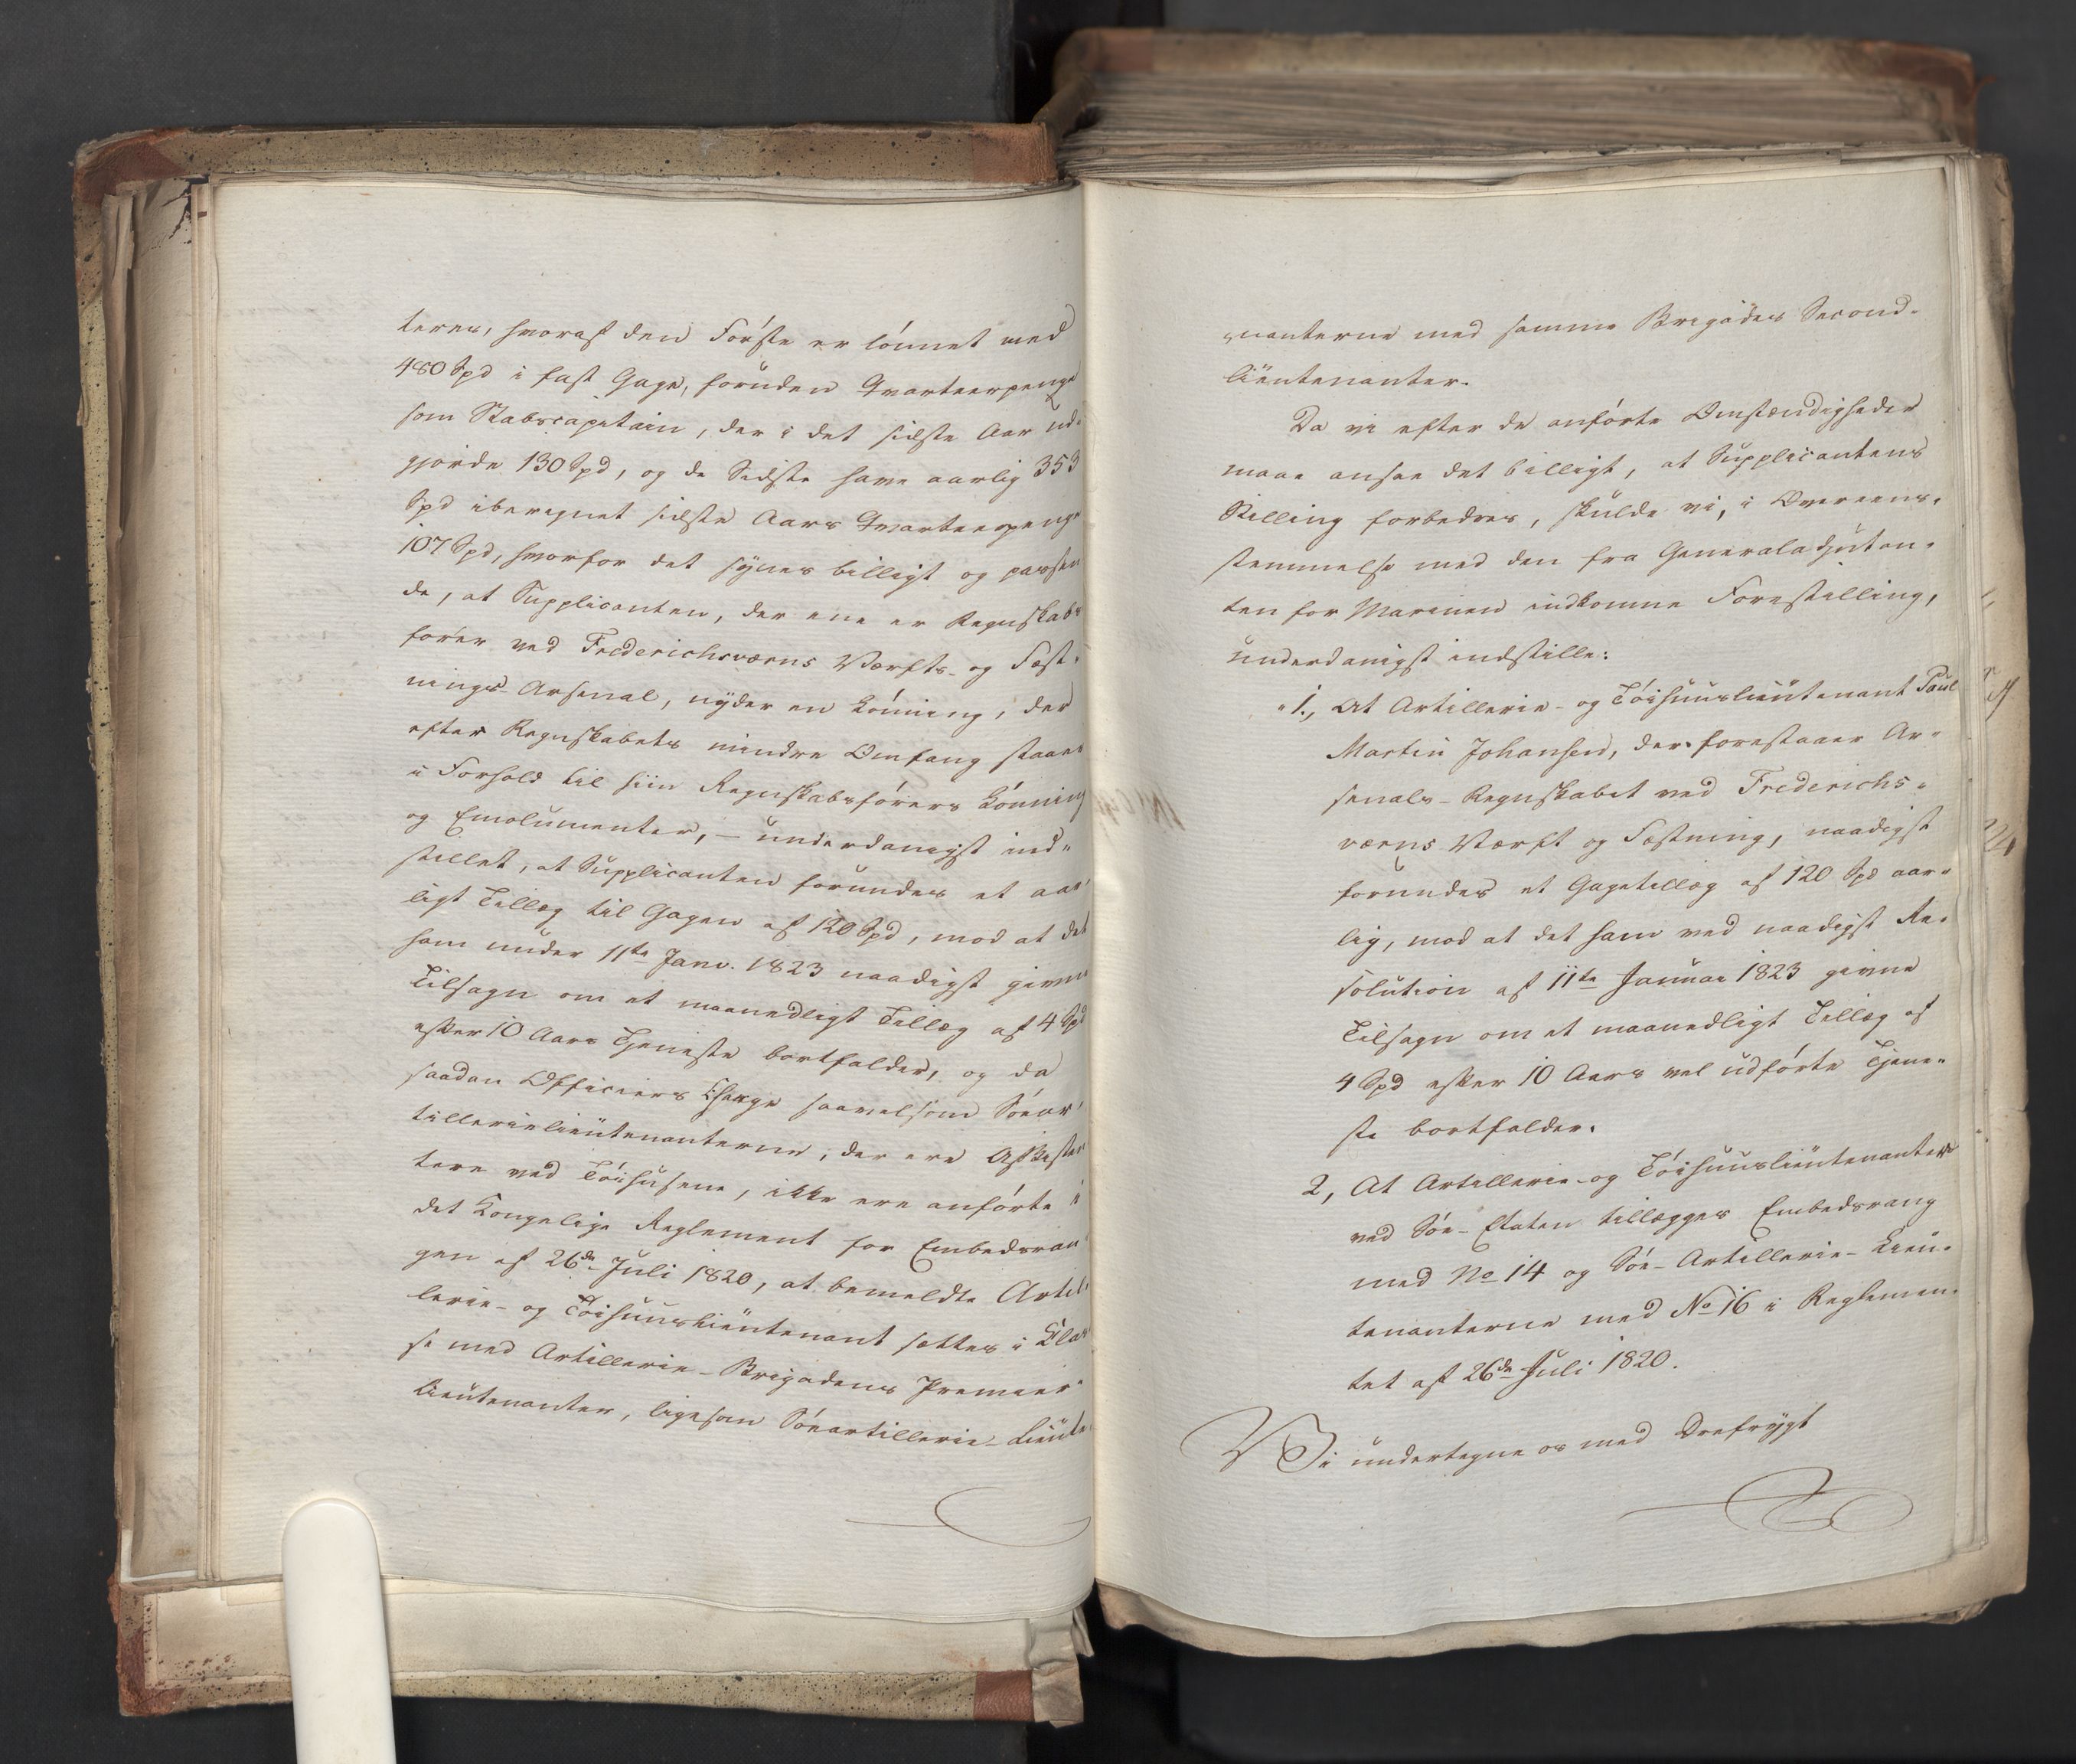 teres, hvoraf den Förste er lönnet med
480 Spd i fast Gage, foruden Qvarteerpenge
som Stabscapitain, der i det sidste Aar ud-
gjorde 130 Spd, og de Sidste have aarlig 353
Spd iberegnet sidste Aars Qvarteerpenge
107 Spd, hvorfor det synes billigt og passen
de, at Supplicanten, der ene er Regnskabs
förer ved Frederichsværns Værfts- og Fæst-
nings-Arsenal, nyder en Lönning, der
efter Regnskabets mindre Omfang staaer
i Forhold til hiin Regnskabsförers Lönning
og Emolumenter, – underdanigst ind-
stillet, at Supplicanten forundes et aar-
ligt Tillæg til Gagen af 120 Spd, mod at det
ham under 11te Janv. 1823 naadigst givne
Tilsagn om et maanedligt Tillæg af 4 Spd
efter 10 Aars Tjeneste bortfalder, og da
saadan Officiers Charge saavelsom Söear-
tillerielieutenanterne, der ere Assisten
tere ved Töihusene, ikke ere anförte i
det Kongelige Reglement for Embedsran
gen af 26de Juli 1820, at bemeldte Artil-
lerie- og Töihuuslieutenant sættes i Klas
se med Artillerie-Brigadens Premier-
lieutenanter, ligesom Söeartillerie-Lieute-
nanterne med samme Brigades Second-
lieutenanter.
Da vi efter de anförte Omstændigheder
maae ansee det billigt, at Supplicantens
Stilling forbedres, skulde vi, i Overeens-
stemmelse med den fra Generaladjutan-
ten for Marinen indkomne Forestilling,
underdanigst indstille:
"1., At Artillerie- og Töihuuslieutenant Paul
Martin Johansen, der forestaaer Ar-
senals-Regnskabet ved Frederichs-
værns Værft og Fæstning, naadigst
forundes et Gagetillæg af 120 Spd aar-
lig, mod at det ham ved naadigst Re-
solution af 11te Januar 1823 givne
Tilsagn om et maanedligt Tillæg af
4 Spd efter 10 Aars vel udförte Tjene-
ste bortfalder.
2, At Artillerie- og Töihuuslieutenanter
ved Söe-Etaten tillægges Embedsrang
med No 14 og Söe-Artillerie-Lieu-
tenanterne med No 16 i Reglemen-
tet af 26de Juli 1820.
Vi undertegne os med Ærefrygt